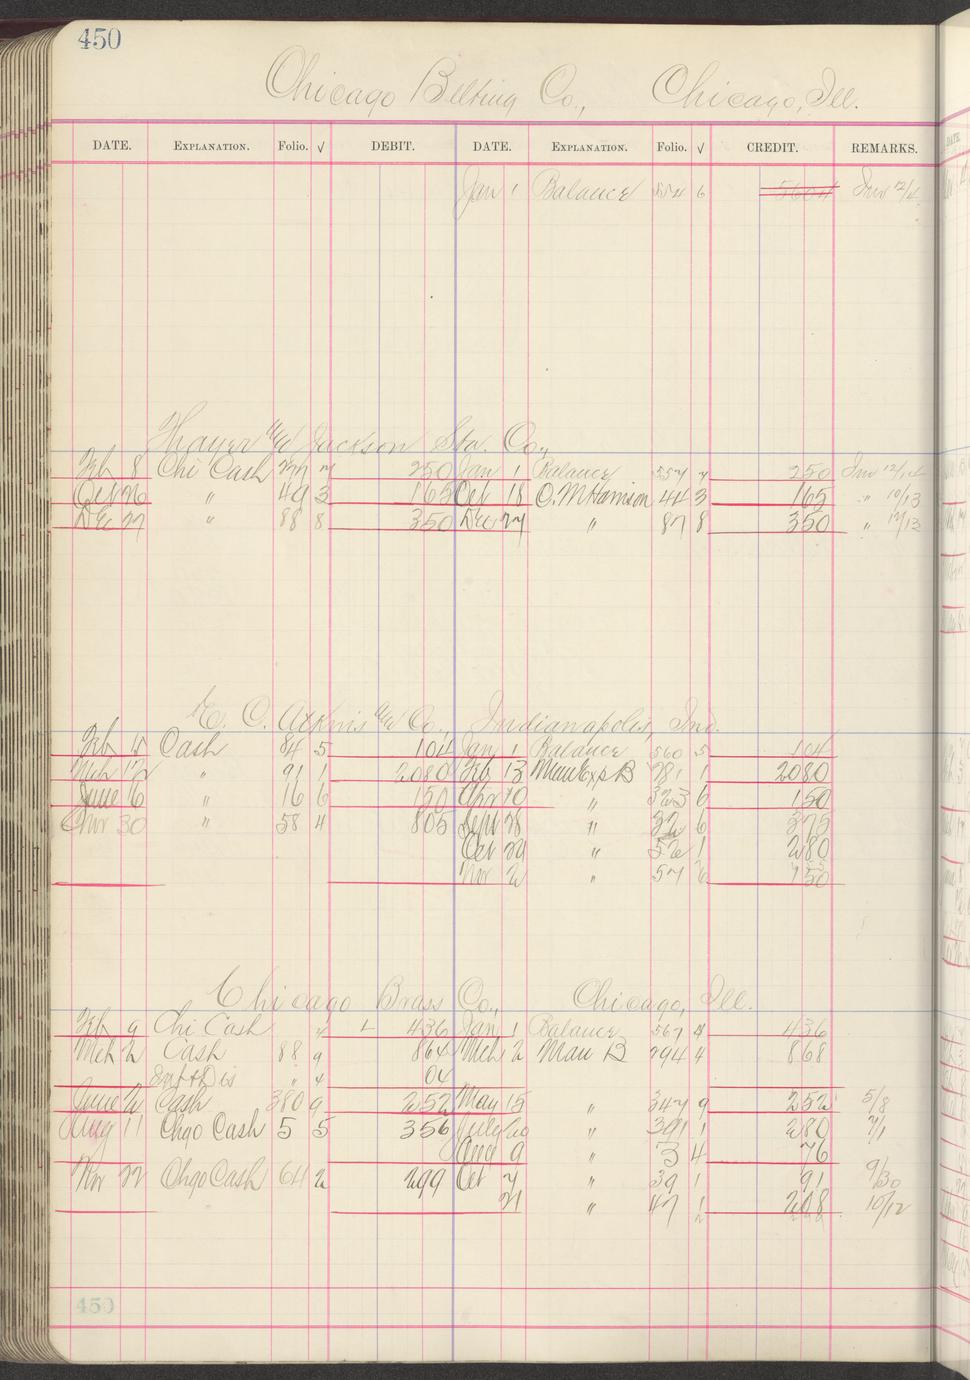 450
Chicago Belting Co., Chicago, Ill.
DATE. EXPLANATION. Folio. √ DEBIT. DATE. EXPLANATION. Folio. √ CREDIT. REMARKS.
Jan 1 Balance 554 6 5604 Inv 12/4
Jackson Sta. Co.,
Feb 8 Chi Cash 250 Jan 1 Balance 557 250 Inv 12/14
Oct 26 " 49 3 165 Oct 18 O. M Harrison 44 3 165 " 10/13
Dec 27 " 88 8 350 Dec 27 " 87 8 350 " 12/13
E. C. Atkins & Co., Indianapolis, Ind.
Feb 15 Cash 84 5 104 Jan 1 Balance 560 5 104
Mch 12 " 91 1 2080 Feb 13 Man Exp B 281 1 2080
June 16 " 16 6 150 Apr 10 " 323 6 150
Nov 30 " 58 4 805 Sept 28 " 32 6 375
Oct 24 " 52 1 280
Nov 2 " 57 6 150
Chicago Brass Co., Chicago, Ill.
Feb 9 Chi Cash " 436 Jan 1 Balance 567 4 436
Mch 2 Cash 88 9 864 Mch 2 Man B 294 4 868
Int & Dis " 4 04
June 2 Cash 380 9 252 May 15 " 347 9 252 5/8
Aug 11 Chgo Cash 5 5 356 July 20 " 391 1 280 7/1
Aug 9 " 3 4 76
Nov 22 Chgo Cash 64 2 299 Oct 7 " 39 1 91 9/30
21 " 47 1 208 10/12
450